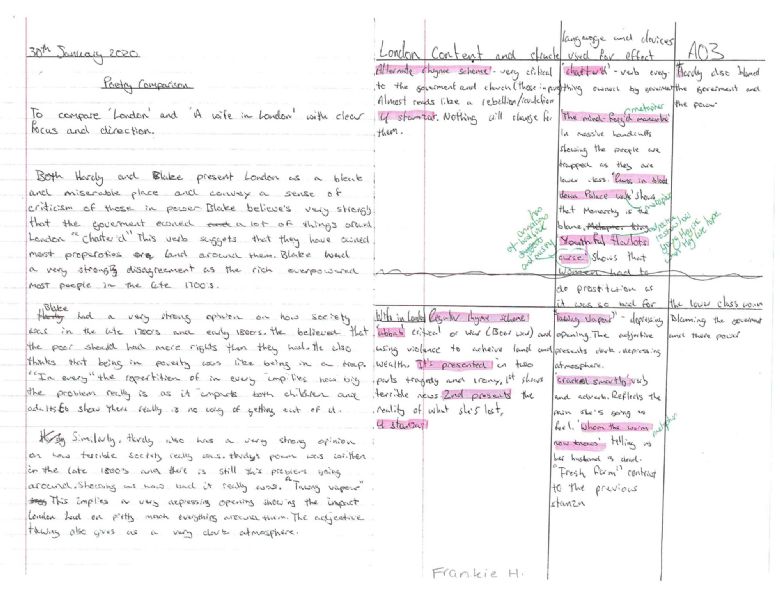 30th January 2020
Poetry Comparison
To compare 'London' and 'A wife in London' with clear
focus and direction.
Both Hardy and Blake present London as a bleak
and miserable place and convey a sense of
criticism of those in power. Blake believe's very strongly
that the goverment owned a lot of things around
London "Charter'd" This verb suggests that they have owned
most properties and land around them. Blake
a very strong disagreement as the rich overpowered
most people in the late 1700's.
Blake
Hardy had a very strong opinion on how society
was in the late 1700's and early 1800s. He believed that
the poor should had more rights than they had. He also
thinks that being in poverty was like being in a trap.
"In every" the repertition of in every implies how big
the problem really is as it impacts both children and
adults to show there really is no way of getting out of it.
Similarly, Hardy also has a very strong opinion
on how terrible society really was. Hardys poem was written
in the late 1800's and there is still this problem going
around. Showing us how bad it really was. "Tawny vapour"
This implies a very depressing opening showing the impact
London had on pretty much everything around them. The adjective
tawny also gives us a very dark atmosphere.
London
Content and structure
Language and devices
used for effect
AO3
Alternate rhyme scheme - very critical
to the goverment and church (those in power)
Almost reads like a rebellion/
4 stanzas. Nothing will change for
them.
'charter'd' - verb every
thing owned by goverment
metaphor
'The mind-forg'd manacles'
in massive handcuffs
showing the people are
trapped as they are
lower class. 'Runs in blood
down Palace walls' shows
metaphor
that Monarchy is the
blame.
'Youthful Harlots
curse' shows that
women had to
do prostitution as
it was so bad for
the lower class women
Hardy also blamed
the goverment and
the power
Wife in London
Regular rhyme scheme
critical of war (Boer War) and
using violence to acheive land and
wealth. It's presented in two
parts tragedy and irony, 1st shows
terrible news 2nd presents the
reality of what she's lost,
4 stanzas
'tawny vapour' - depressing
opening. The adjective
presents dark, depressing
atmosphere.
'cracked smartly' verb
and adverb. Reflects the
pain she's going to
feel. 'whom the worm
metaphor
now knows' telling us
her husband is dead.
"Fresh firm" contrast
to the previous
stanza
Blaming the goverment
and there power
Frankie H.